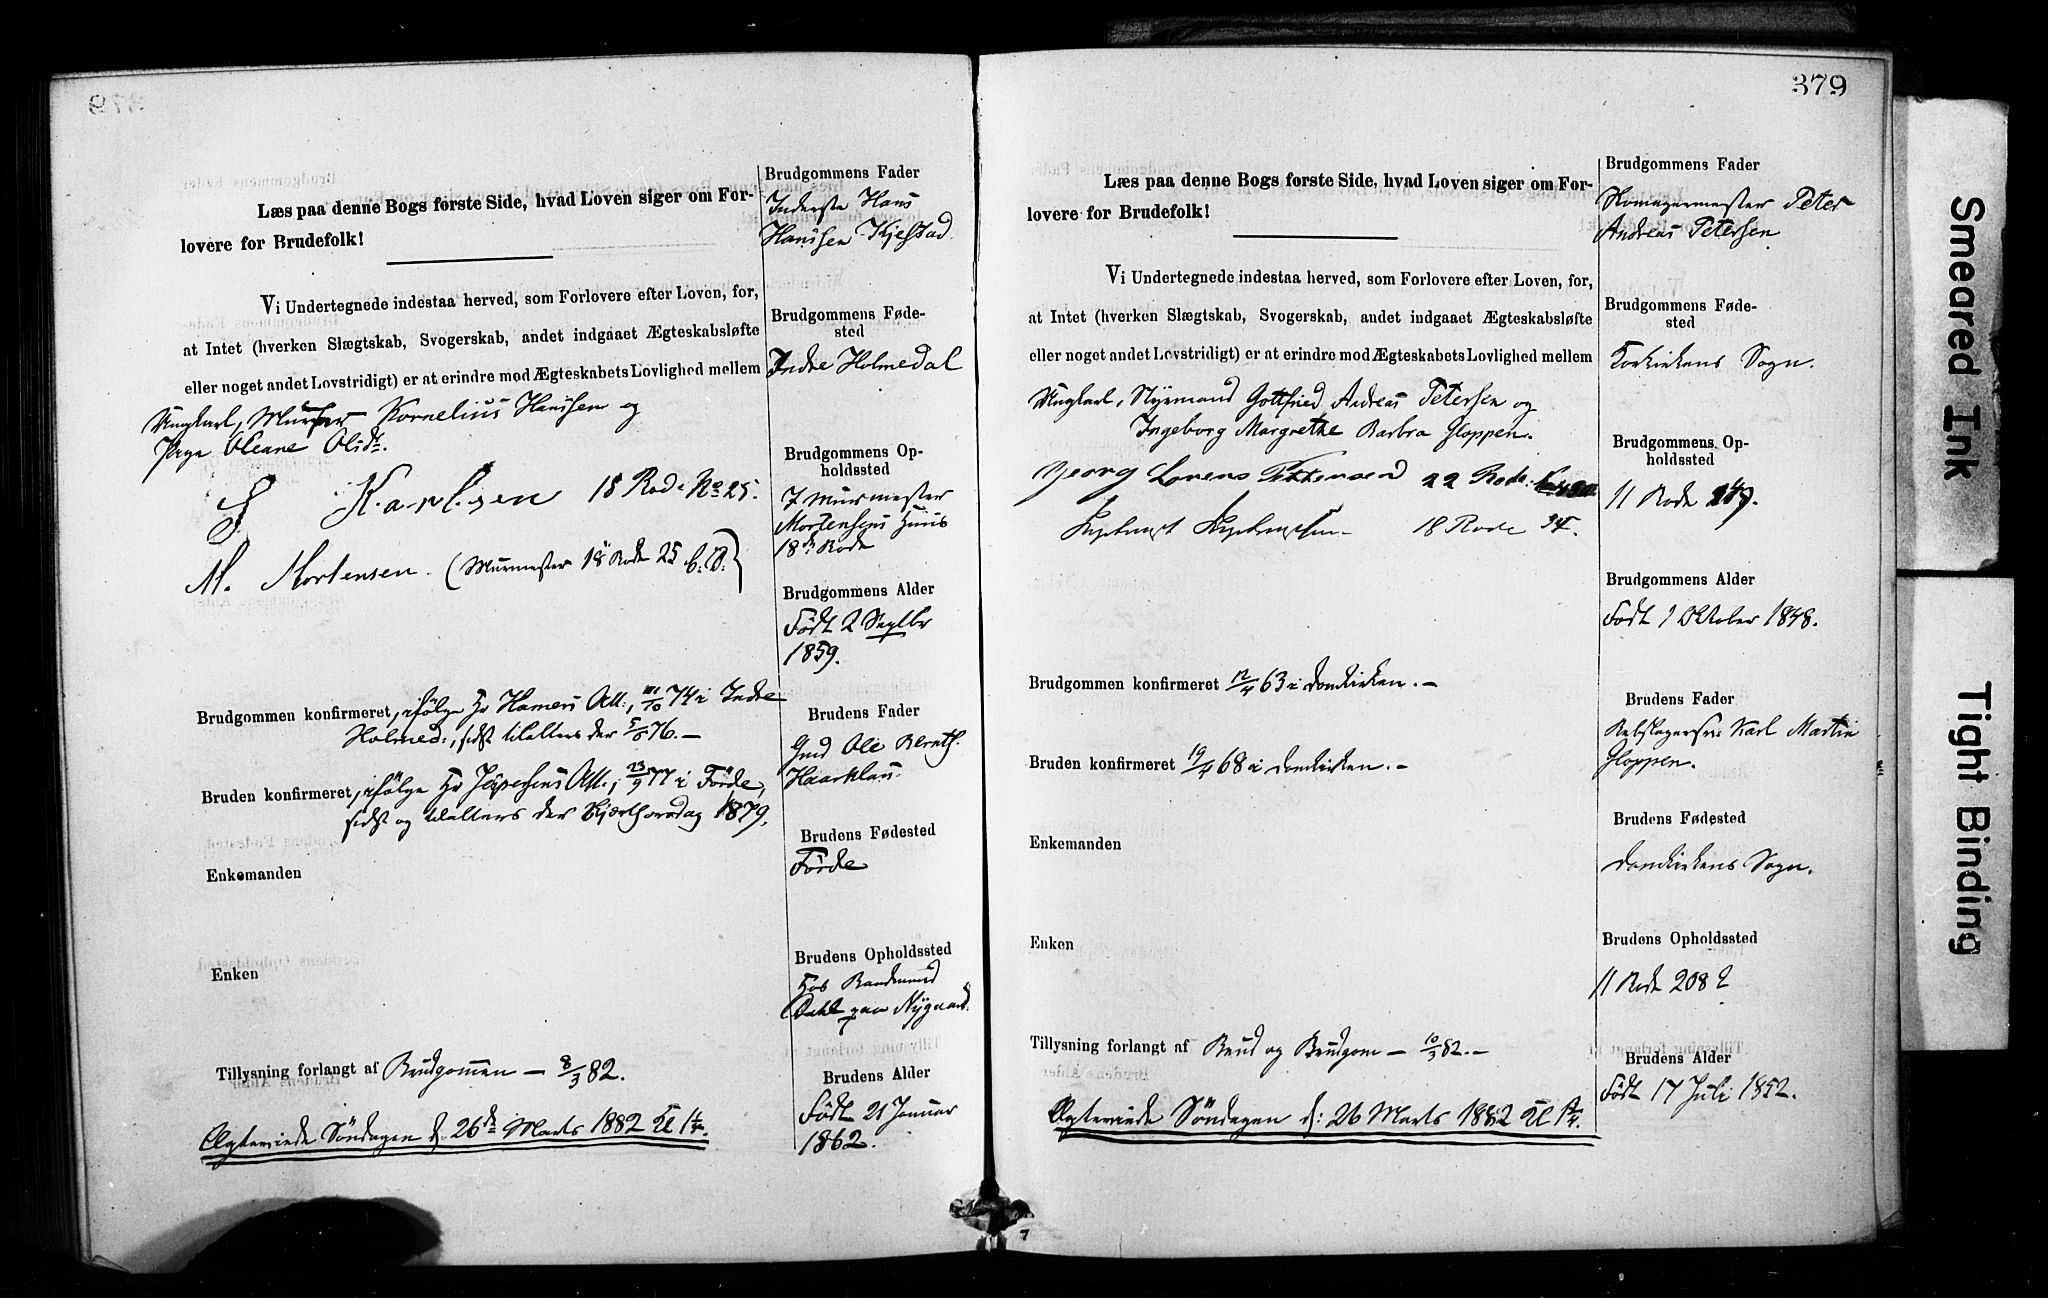 Læs paa denne Bogs første Side, hvad Loven siger om For-
lovere for Brudefolk!
Vi Undertegnede indestaa herved, som Forlovere efter Loven, for,
at Intet (hverken Slægtskab, Svogerskab, andet indgaaet Ægteskabsløfte
eller noget andet Lovstridigt) er at erindre mod Ægteskabets Lovlighed mellem
Ungkarl, Murer Kornelius Hanssen og
Pige Oleane Olsdt.
Karlsen 18 Rode No 25.
M. Mortensen. (Murmester 18 Rode 25
Brudgommen konfirmeret, ifølge Hr Hamers Att., 74 i Indre
Holmed:, sidst til alters der 76.—
Bruden konfirmeret, ifølge Hr Jespersens Att., 23/9 77 i Förde,
sidst og til alters der 1879.
Enkemanden
Enken
Tillysning forlangt af Brudgommen — 8/3 82.
Ægteviede Söndagen d. 26de Marts 1882 Kl
Brudgommens Fader
Inderste Hans
Hanssen Kjelstad
Brudgommens Føde-
sted
Indre Holmedal
Brudgommens Op-
holdssted
Murmester
Mortensens Huus
18de Rode
Brudgommens Alder
Födt 2 Septbr
1859.
Brudens Fader
Gmd Ole Bernth.
Haarklau.
Brudens Fødested
Förde
Brudens Opholdssted
Hos
Dahl paa Nygaard.
Brudens Alder
Födt 21 Januar
1862.
379
Læs paa denne Bogs første Side, hvad Loven siger om For-
lovere for Brudefolk!
Vi Undertegnede indestaa herved, som Forlovere efter Loven, for,
at Intet (hverken Slægtskab, Svogerskab, andet indgaaet Ægteskabsløfte
eller noget andet Lovstridigt) er at erindre mod Ægteskabets Lovlighed mellem
Ungkarl, Styrmand Gottfried Andreas Petersen og
Ingeborg Margrethe Barbra Gloppen.
Georg Lorens Pettersen 22 Rode
18 Rode
Brudgommen konfirmeret 12/4 63 i Domkirken.—
Bruden konfirmeret 19/4 68 i Domkirken.—
Enkemanden
Enken
Tillysning forlangt af Brud og Brudgom — 10/3 82.—
Ægteviede Söndagen d: 26 Marts 1882 Kl
Brudgommens Fader
Skomagermester Peter
Andreas Petersen
Brudgommens Føde-
sted
Korkirkens Sogn.
Brudgommens Op-
holdssted
11 Rode
Brudgommens Alder
Födt 1 Oktober 1848.
Brudens Fader
Rebslagersv: Karl Martin
Gloppen.
Brudens Fødested
Domkirkens Sogn.
Brudens Opholdssted
11 Rode 208
Brudens Alder
Födt 17 Juli 1852.
7
Smeared Ink
Tight Binding